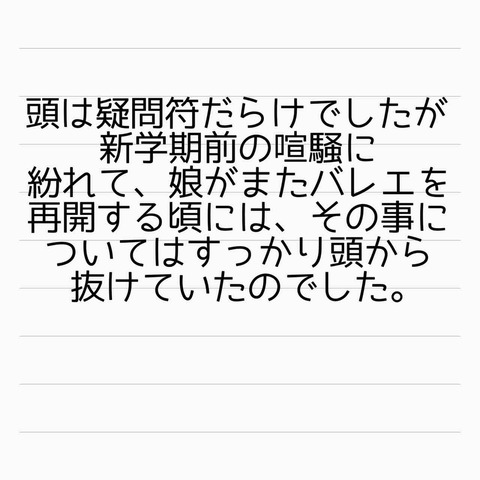 頭は疑問符だらけでしたが
新学期前の喧騒に
紛れて、娘がまたバレエを
再開する頃には、その事に
ついてはすっかり頭から
抜けていたのでした。